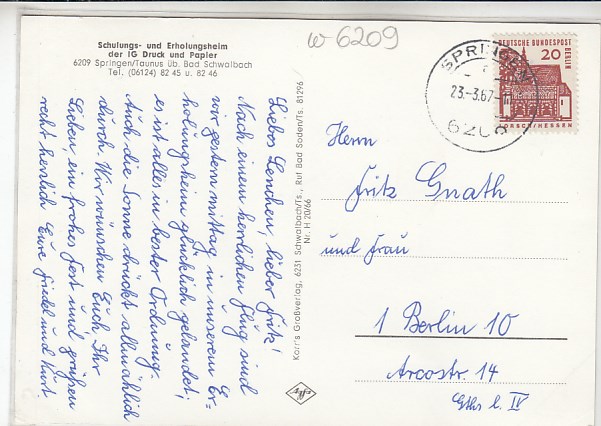 w 6209
Schulungs- und Erholungsheim
der IG Druck und Papier
6209 Springen/Taunus üb. Bad Schwalbach
Tel. (06124) 82 45 u. 82 46
Liebes Lenchen, lieber Fritz!
Nach einem herrlichen Flug sind
wir gestern mittag in unserem Er-
holungsheim glücklich gelandet;
es ist alles in bester Ordnung.
Auch die Sonne drückt allmählich
durch. Wir wünschen Euch Ihr
Lieben, ein frohes Fest und grüßen
recht herzlich Eure Friedel und Kurt.
Korr's Großverlag, 6231 Schwalbach/Ts., Ruf Bad Soden/Ts. 81296
Nr. H 20/66
Agfa
DEUTSCHE BUNDESPOST
BERLIN
20
LORSCH/HESSEN
SPRINGEN
23.-3.67
6209
Herrn
Fritz Gnath
und Frau
1 Berlin 10
Arcostr. 14
Gths b. IV